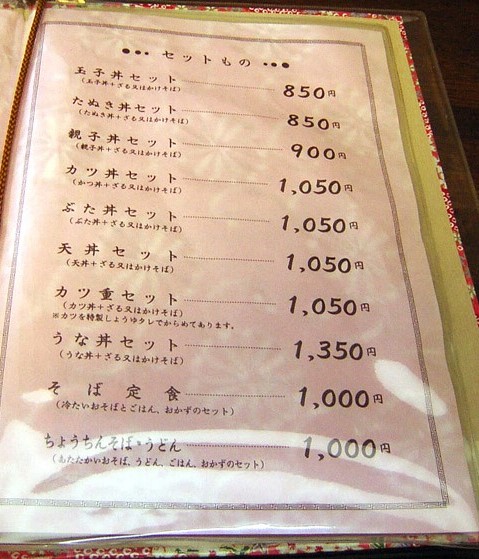 ●●• セットもの •●●
玉子丼セット 850円
(玉子丼+ざる又はかけそば)
たぬき丼セット 850円
(たぬき丼+ざる又はかけそば)
親子丼セット 900円
(親子丼+ざる又はかけそば)
カツ丼セット 1,050円
(かつ丼+ざる又はかけそば)
ぶた丼セット 1,050円
(ぶた丼+ざる又はかけそば)
天丼セット 1,050円
(天丼+ざる又はかけそば)
カツ重セット 1,050円
(カツ丼+ざる又はかけそば)
※カツを特製しょうゆタレでからめてあります。
うな丼セット 1,350円
(うな丼+ざる又はかけそば)
そば定食 1,000円
(冷たいおそばとごはん、おかずのセット)
ちょうちんそば・うどん 1,000円
(あたたかいおそば、うどん、ごはん、おかずのセット)